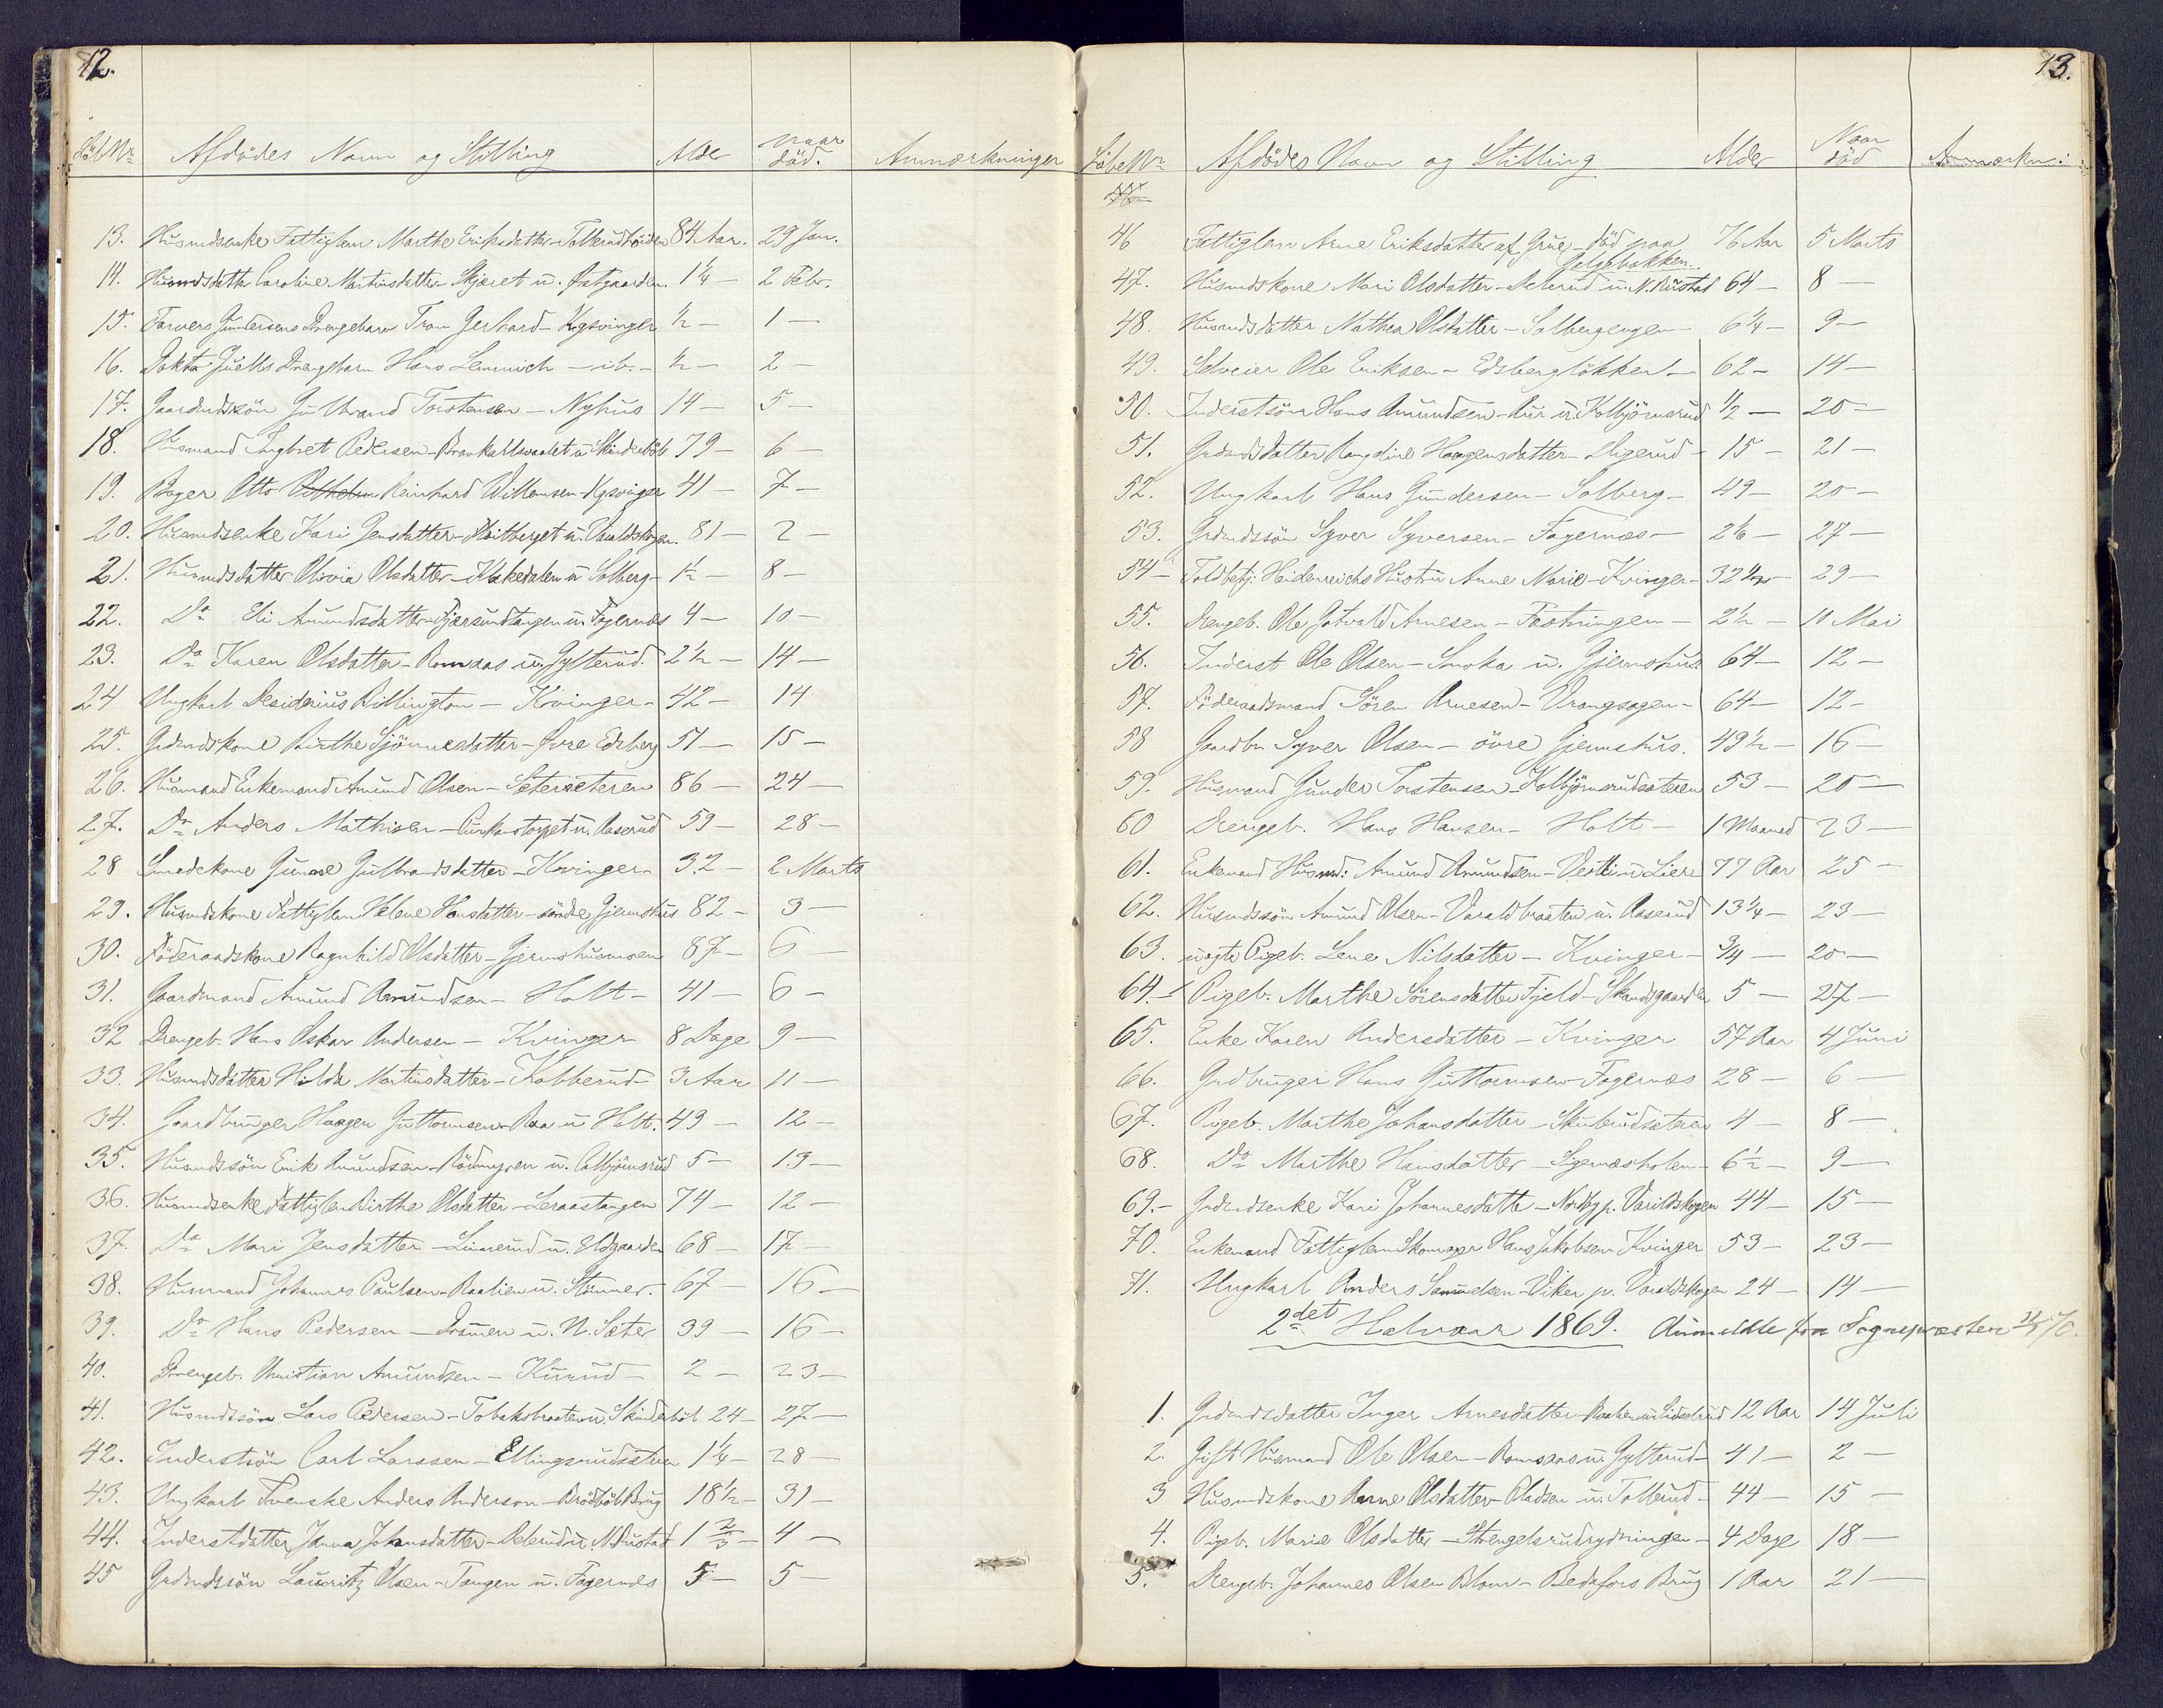 12.
Löb Nr Afdödes Navn og Stilling Alder Naar död. Anmærkninger
13. Husmdsenke Fattiglem Marthe Eriksdatter - Tollerudhöiden 84 Aar. 29 Jan.
14. Husmdsdatter Caroline Martinsdatter - Skjæret u. Østgaarden. 1 1/4 — 2 Febr.
15. Farvers Gundersens Drengebarn Tron Gerhard - Kgsvinger 1/2 — 1 —
16. Doktor Juells Drengebarn Hans Lemmich — ib. — 1/2 — 2 —
17. Gaardmdssön Gulbrand Torstensen — Nyhus 14 — 5 —
18. Husmand Engbret Pedersen - u. Skinderböl 79 — 6 —
19. Bager Otto Reinhard Willemsen - Kgsvinger 41 — 7 —
20. Husmdsenke Kari Jensdatter - u. Varaldskogen. 81 — 2 —
21. Husmdsdatter Olivia Olsdatter - Klokkedalen u Solberg - 1 1/2 — 8 —
22. Do Eli Amundsdatter - Fjersundtangen u. Fagernæs 4 — 10 —
23. Do Karen Olsdatter - Romsaas u. Gylterud. 2 1/2 — 14 —
24 Ungkarl Desiderius Billington — Kvinger - 42 — 14
25. Grdmdskone Birthe - Øvre Edsberg 51 — 15 —
26. Husmand Enkemand Amund Olsen - Sæterseteren 86 — 24 —
27. Do Anders Mathisen - u. Aaserud 59 — 28 —
28 Smedekone Gunnor Gulbrandsdatter - Kvinger 32 — 2 Marts
29. Husmdskone Fattiglem Helene Hansdatter - söndre Gjermshus 82 — 3 —
30. Föderaadskone Ragnhild Olsdatter - Gjermshusmoen 87 — 6 —
31. Gaardmand Amund Amundsen - Holt - 41 — 6 —
32 Drengeb. Hans Oskar Andersen - Kvinger 8 Dage 9 —
33. Husmdsdatter Hilda Martinsdatter - Kabberud - 3 Aar 11 —
34. Gaardbruger Haagen Guttormsen - Roa u Holt. 49 — 12 —
35. Husmdssön Erik Amundsen - Rödmyren u. Colbjörnsrud 5 — 13 —
36. Husmdsenke Fattiglem Birthe Olsdatter - Leraastangen 74 — 12 —
37. Do Mari Jensdatter - Linnerud u. Udgaarden 68 — 17 —
38. Husmand Johannes Paulsen - Raalien u. Stömner. 67 — 16 —
39. Do Hans Pedersen - Dammen u. N. Sæter 39 — 16 —
40. Drengeb. Christian Amundsen - Kurud - 2 — 23 —
41. Husmdssön Lars Pedersen - Tobaksbraaten u. Skinderböl 24 — 27 —
42. Inderstsön Carl Larssen - Ellingsrudsæteren 1 1/4 — 28 —
43. Ungkarl Svenske Anders Anderson - Brödböl Brug 18 1/2 — 31 —
44. Inderstdatter Janna Johansdatter - Delerud u N. Rustad 1 2/3 — 4 —
45 Grdmdssön Lauritz Olsen - Tangen u. Fagernæs 5 — 5 —
13.
Löbe Nr Afdödes Navn og Stilling Alder Naar död Anmærkn:
46 Fattiglem Arne Eriksdatter af Grue - död paa Galgebakken. 76 Aar 5 Marts
47. Husmdskone Mari Olsdatter - Delerud u. N. Rustad 64 — 8 —
48. Husmandsdatter Mathea Olsdatter - Solbergengen — 6 1/4 — 9 —
49. Selveier Ole Eriksen - Edsberglökken — 62 — 14 —
50. Inderstsön Hans Amundsen - Aur u. Kolbjörnsrud 1/2 — 20 —
51. Grdmdsdatter Rangdine Haagensdatter - Digerud - 15 — 21 —
52. Ungkarl Hans Gundersen - Solberg - 49 — 20 —
53. Grdmdssön Syver Syversen - Fagernæs — 2 1/6 — 27 —
54 — Toldbetj: Heidenreichs Hustru Anne Marie - Kvinger - 32 — 29 —
55. Drengeb. Ole Gotvald Arnesen - Fæstningen — 2 1/2 — 10 Mai
56. Inderst Ole Olsen - Snoka u. Gjermshus 64 — 12 —
57. Föderaadsmand Sören Arnesen - Vrangsagen - 64 — 12 —
58 Gaardbr. Syver Olsen - övre Gjermshus. 49 1/2 — 16 —
59. Husmand Gunder Torstensen - Kolbjörnsrudsæteren 53 — 20 —
60 Drengeb. Hans Hansen - Holt — 1 Maaned 23 —
61. Enkemand Husmd: Amund Amundsen - u Lier 77 Aar 25 —
62. Husmdssön Amund Olsen - Varaldbraaten u. Aaserud 13 1/4 — 23 —
63. uægte Pigeb. Lene Nilsdatter - Kvinger - 3/4 — 20 —
64. Pigeb. Marthe Sörensdatter Fjeld - Skandsgaarden 5 — 27 —
65. Enke Karen Andersdatter - Kvinger 57 Aar 4 Juni
66. Grdbruger Hans Guttormsen - Fagernæs 28 — 6 —
67. Pigeb. Marthe Johansdatter - Skulerudsæteren 4 — 8 —
68. Do Marthe Hansdatter - Sigernæsholen - 6 1/2 — 9 —
69. - Grdmdsenke Kari Johannesdatter - Nordby p. Varildskogen 44 — 15 —
70. Enkemand Fattiglem Skomager Hans Jakobsen Kvinger 53 — 23 —
71. Ungkarl Anders Samuelsen - Viker p. Varaldskogen 24 — 14 —
2det Halvaar 1869. Anmeldte fra Sognepræsten
1. Grdmdsdatter Inger Arnesdatter - 12 Aar 14 Juli
2. Gift Husmand Ole Olsen - Romsaas u. Gylterud - 41 — 2 —
3 Husmdskone Anne Olsdatter - Pladsen u. Tollerud - 44 — 15 —
4. Pigeb. Marie Olsdatter - Strengelsrudrydningen — 4 Dage 18 —
5. Drengeb. Johannes Olsen Blom - Bedafors Brug 1 Aar 21 —